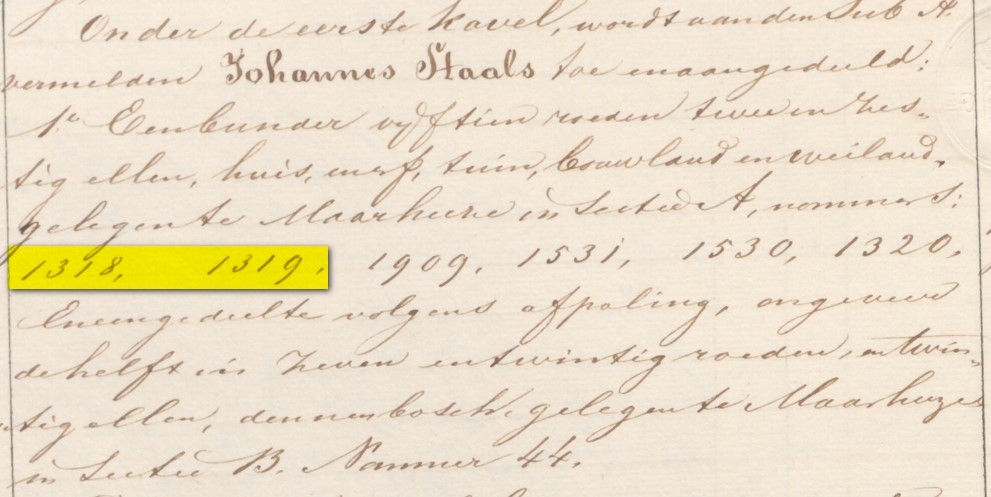 Onder de eerste kavel, wordt aan den Sub A.
vermelden Johannes Staals toe en aangedeeld:
1° Een bunder vyftien roeden twee en zes-
tig ellen, huis, en erf, tuin, bouwland en weiland,
gelegen te Maarheeze in Sectie A, nommers:
1318, 1319, 1909, 1531, 1530, 1320,
En een gedeelte volgens afpaling, ongeveer
de helft in zeven en twintig roeden, en twin-
tig ellen, dennenbosch, gelegen te Maarheeze
in Sectie B. Nommer 44.